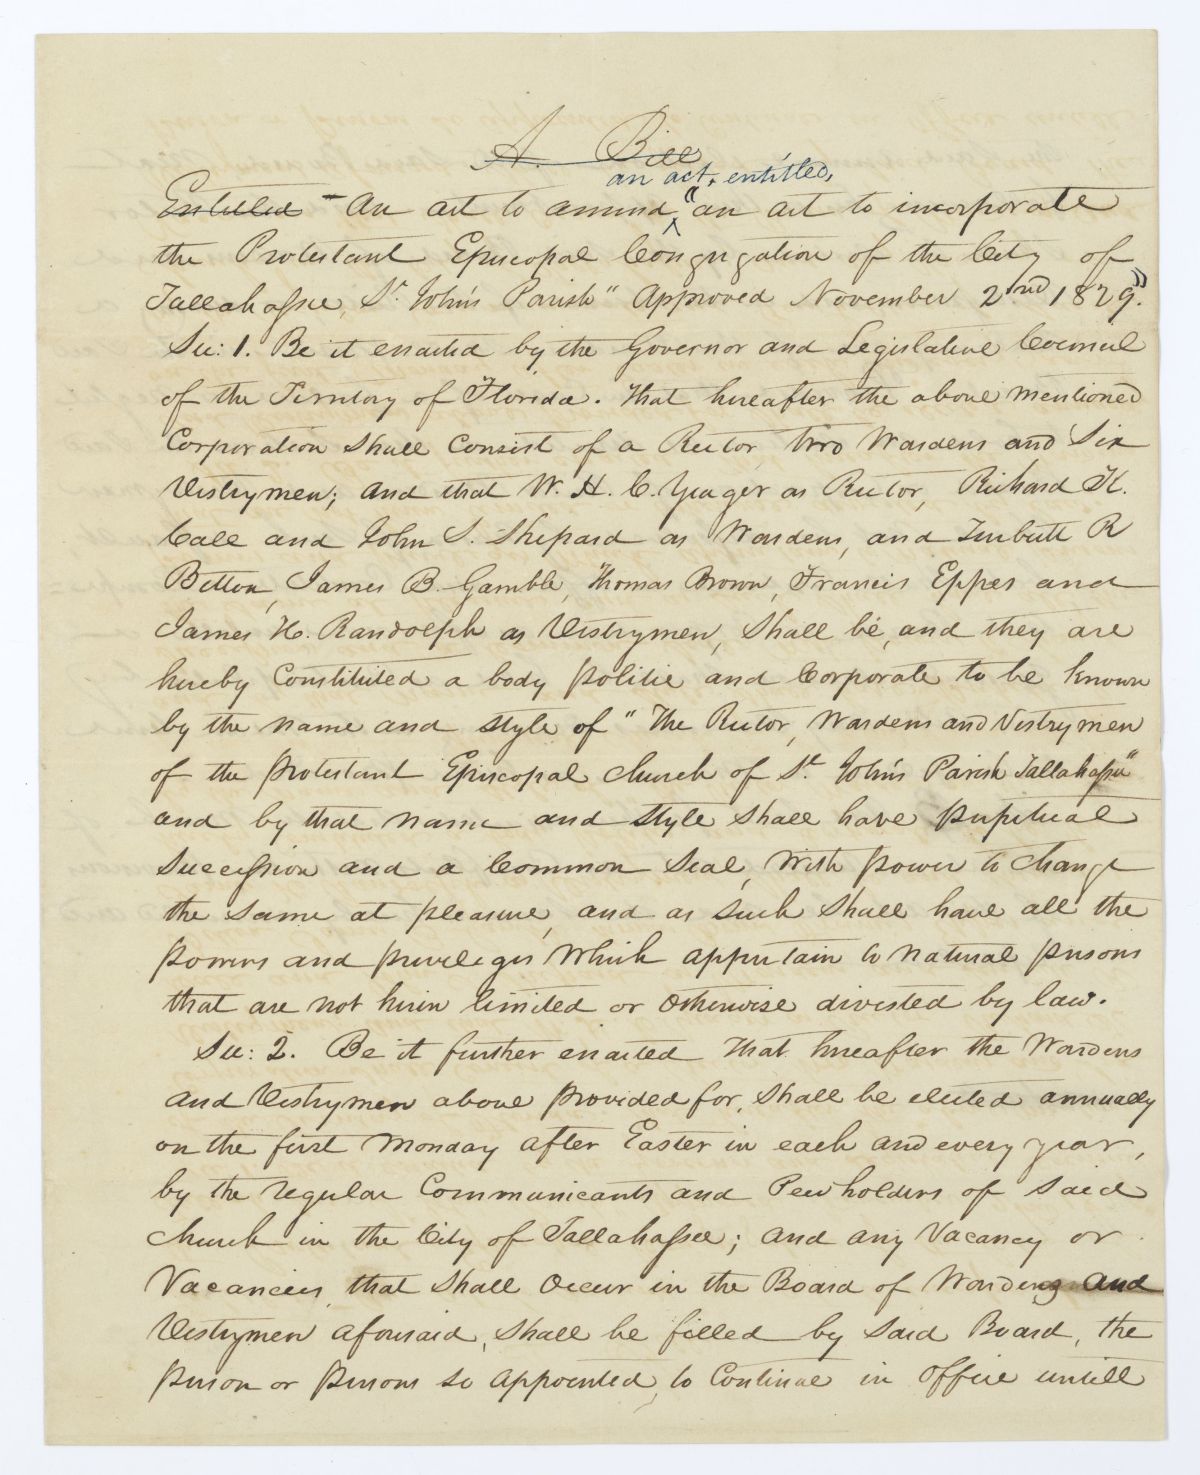 A. Bill
an act, entitled,
Entitled - An act to amend "an act to incorporate
the Protestant Episcopal Congregation of the City of
Tallahassee, St. John's Parish" Approved November 2nd 1829."
Sec: 1. Be it enacted by the Governor and Legislative Council
of the Territory of Florida. That hereafter the above mentioned
Corporation shall consist of a Rector, two Wardens and Six
Vestrymen; and that W. H. C. Yeager as Rector, Richard K.
Call and John S. Shepard as Wardens, and Turbutt R
Betton, James B. Gamble, Thomas Brown, Francis Eppes and
James H. Randolph as Vestrymen, Shall be, and they are
hereby Constituted a body politic and Corporate to be known
by the name and style of "The Rector, Wardens and Vestrymen
of the protestant Episcopal church of St. John's Parish Tallahassee"
and by that name and style shall have perpetual
Succession and a Common Seal, With power to change
the same at pleasure, and as such shall have all the
powers and privileges which appertain to natural persons
that are not herein limited or otherwise divested by law.
Sec: 2. Be it further enacted That hereafter the Wardens
and Vestrymen above provided for, shall be elected annually
on the first Monday after Easter in each and every year,
by the regular Communicants and Pewholders of Said
church in the City of Tallahassee; and any Vacancy or
Vacancies that shall occur in the Board of Wardens and
Vestrymen aforesaid, shall be filled by said Board, the
person or persons so appointed, to Continue in office untill